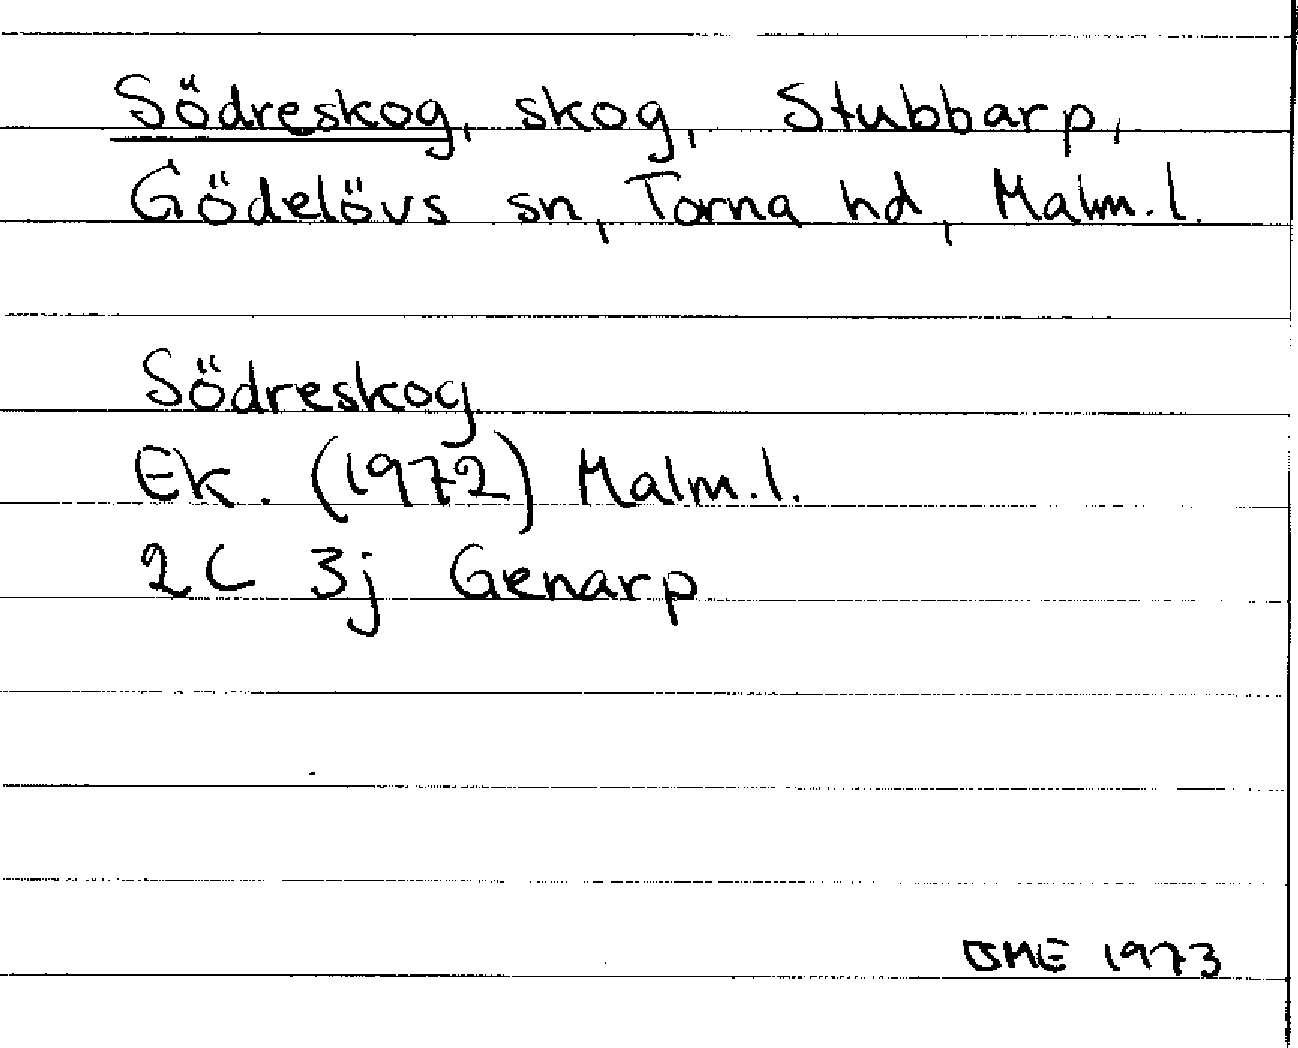 Södreskog, skog, Stubbarp,
Gödelövs sn, Torna hd, Malm.l.
Södreskog
Ek. (1972) Malm.l.
2C 3j Genarp
1973